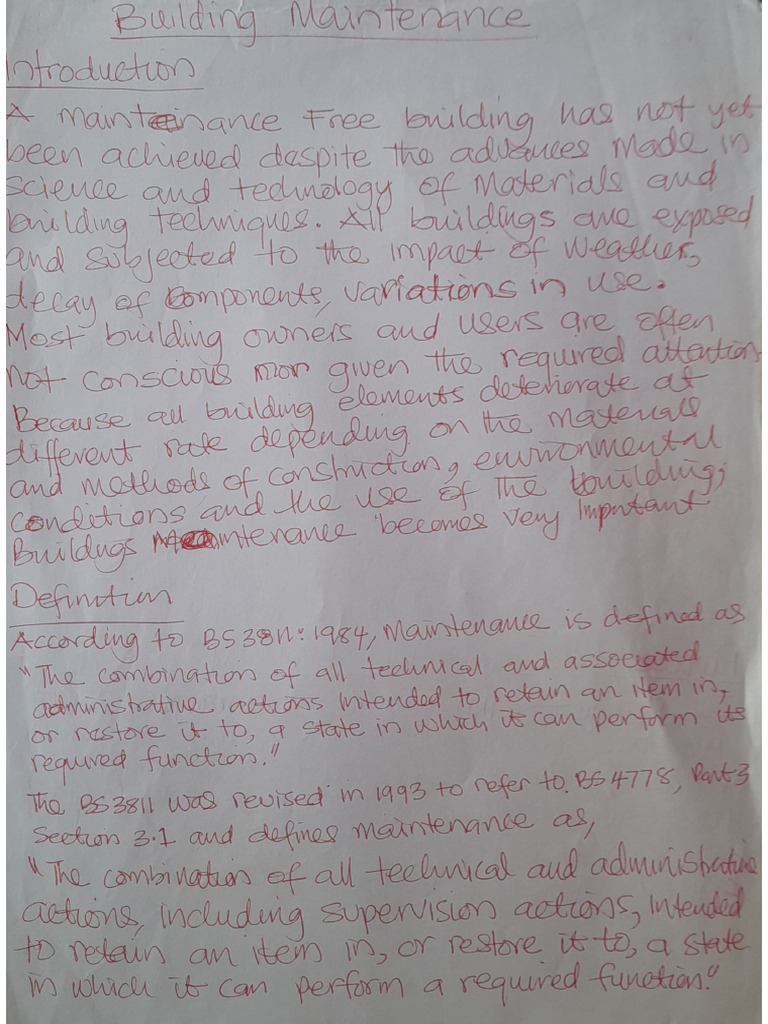 Building Maintenance
Introduction
A maintenance Free building has not yet
been achieved despite the advances made in
science and technology of materials and
building techniques. All buildings are exposed
and subjected to the impact of weather,
decay of components, variations in use.
Most building owners and users are often
not conscious nor given the required attention
Because all building elements deteriorate at
different rate depending on the materials
and methods of construction, environmental
conditions and the use of the building;
Buildings Maintenance becomes very important
Definition
According to BS 3811:1984, Maintenance is defined as
"The combination of all technical and associated
administrative actions intended to retain an item in,
or restore it to, a state in which it can perform its
required function."
The BS3811 was revised in 1993 to refer to BS 4778, Part 3
Section 3.1 and defines maintenance as,
"The combination of all technical and administrative
actions, including supervision actions, intended
to retain an item in, or restore it to, a state
in which it can perform a required function."